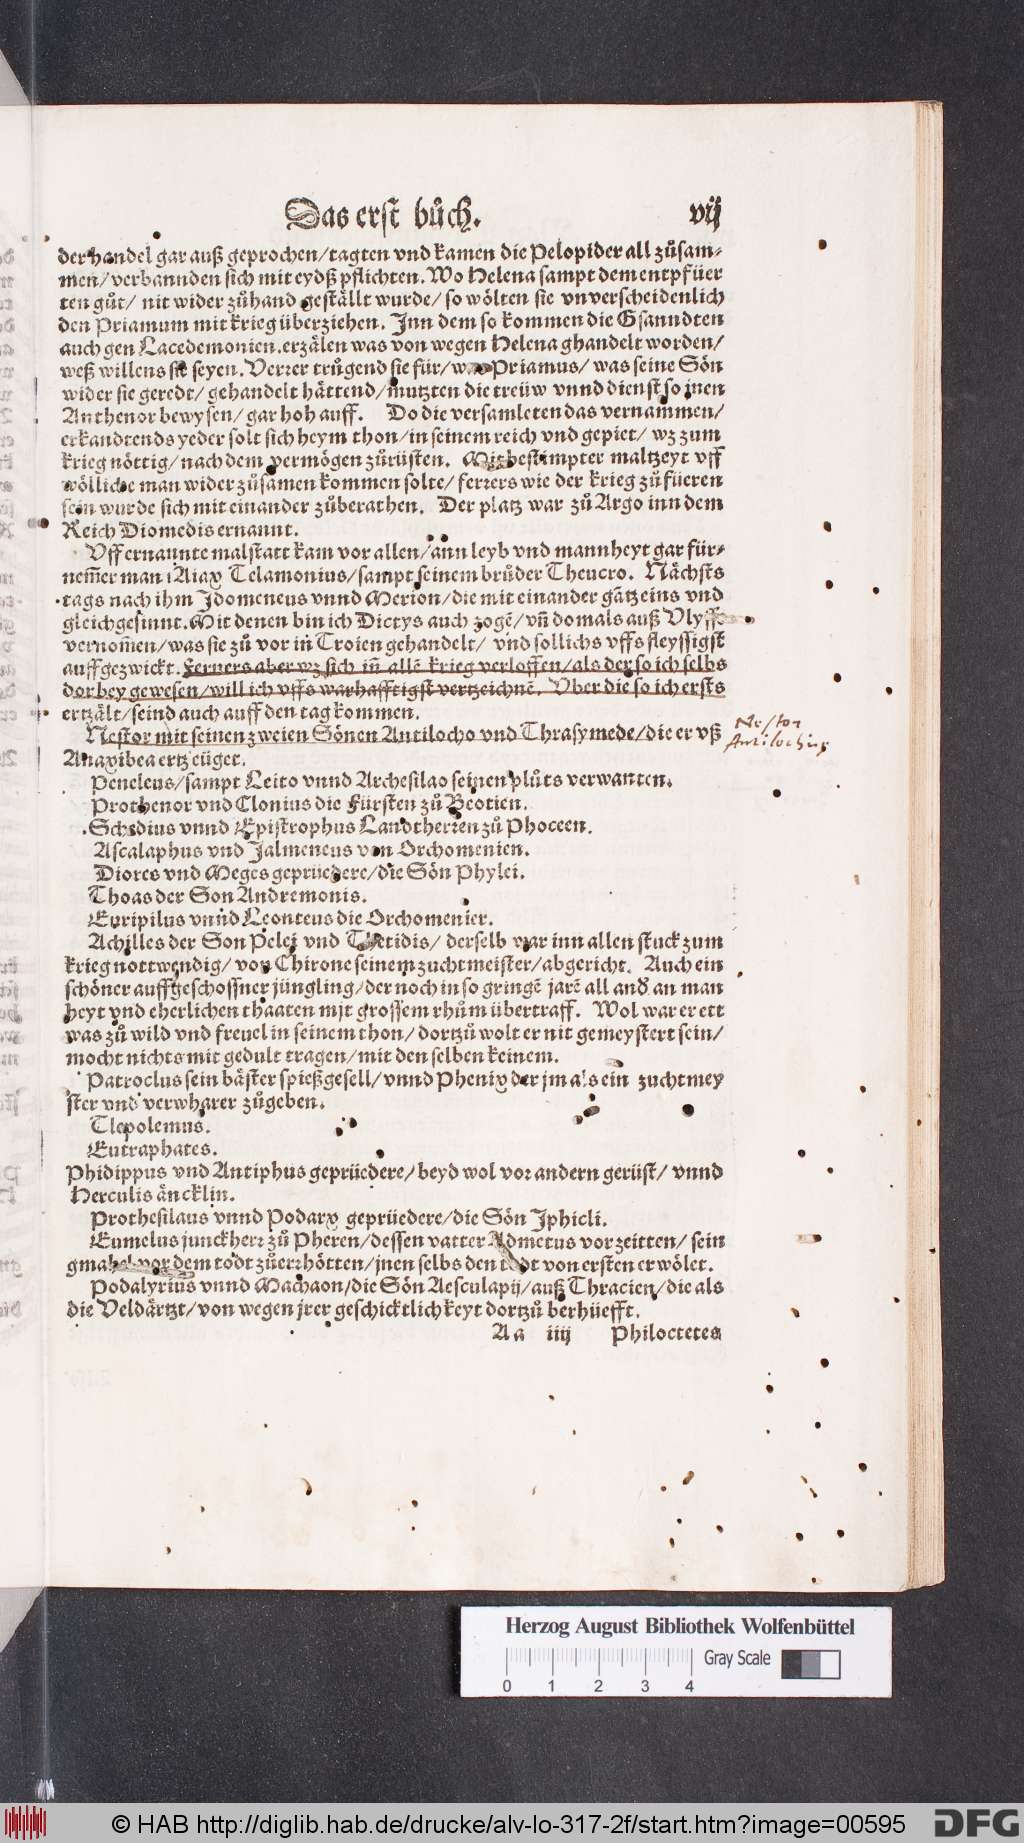 Das erst bůch. vij
der handel gar auß geprochen/tagten vnd kamen die Pelopider all zůsam-
men/verbannden sich mit eydß pflichten. Wo Helena sampt dem entpfüer
ten gůt/ nit wider zůhand geställt wurde/ so wölten sie vnverscheidenlich
den Priamum mit krieg überziehen. Inn dem so kommen die Gsanndten
auch gen Lacedemonien.erzälen was von wegen Helena ghandelt worden/
weß willens sie seyen. Verrer trůgend sie für/ Priamus/ was seine Sön
wider sie geredt/ gehandelt hättend/mutzten die treüw vnnd dienst so jnen
Anthenor bewysen/ gar hoh auff. Do die versamleten das vernammen/
erkandtends yeder solt sich heym thon/in seinem reich vnd gepiet/ wz zum
krieg nöttig/nach dem vermögen zůrüsten. bestimpter maltzeyt vff
wölliche man wider zůsamen kommen solte/ ferrers wie der krieg zů füeren
sein wurde sich mit einander zůberathen. Der platz war zů Argo inn dem
Reich Diomedis ernannt.
Vff ernannte malstatt kam vor allen/ann leyb vnd mannheyt gar für-
nem̃er man Aiax Telamonius/sampt seinem brůder Theucro. Nächsts
tags nach ihm Idomeneus vnnd Merion/die mit einander gätz eins vnd
gleichgesinnt.Mit denen bin ich Dictys auch zogẽ/vñ domals auß
vernom̃en/was sie zů vor in Troien gehandelt/ vnd sollichs vffs fleyssigst
auffgezwickt.Ferners aber wz sich im̃ allẽ krieg verloffen/als der so ich selbs
dorbey gewesen/will ich vffs warhafftigst vertzeichnẽ. Vber die so ich ersts
ertzält/seind auch auff den tag kommen.
Nestor mit seinen zweien Sönen Antilocho vnd Thrasymede/die er vß
Nestor
Antilochus
Anaxibea ertzeüget.
Peneleus/sampt Leito vnnd Archesilao seinen plůts verwanten.
Prothenor vnd Clonius die Fürsten zů Beotien.
Schedius vnnd Epistrophus Landtherren zů Phoceen.
Ascalaphus vnd Jalmeneus von Orchomenien.
Diores vnd Meges geprüedere/die Sön Phylei.
Thoas der Son Andremonis.
Euripilus vnnd Leonteus die Orchomenier.
Achilles der Son Pelei vnd Thetidis/ derselb war inn allen stuck zum
krieg nottwendig/ von Chirone seinem zuchtmeister/abgericht. Auch ein
schöner auffgeschossner jüngling/der noch in so gringẽ jarẽ all and an man
heyt vnd eherlichen thaaten mit grossem rhům übertraff. Wol war er ett
was zů wild vnd freuel in seinem thon/ dortzů wolt er nit gemeystert sein/
mocht nichts mit gedult tragen/mit den selben keinem.
Patroclus sein bäster spießgesell/vnnd Phenix der jm als ein zuchtmey
ster vnd verwharer zůgeben.
Tlepolemus.
Eutraphates.
Phidippus vnd Antiphus geprüedere/beyd wol vor andern gerüst/ vnnd
Herculis äncklin.
Prothesilaus vnnd Podarx geprüedere/die Sön Iphicli.
Eumelus junckherr zů Pheren/dessen vatter Admetus vorzeitten/ sein
gmahel vor dem todt zůerrhötten/jnen selbs den todt von ersten erwölet.
Podalyrius vnnd Machaon/die Sön Aesculapij/auß Thracien/die als
die Veldärtzt/von wegen jrer geschicktlichkeyt dortzů berhüefft.
Aa iiij Philoctetes
Herzog August Bibliothek Wolfenbüttel
Gray Scale
0 1 2 3 4
© HAB http://diglib.hab.de/drucke/alv-lo-317-2f/start.htm?image=00595 DFG